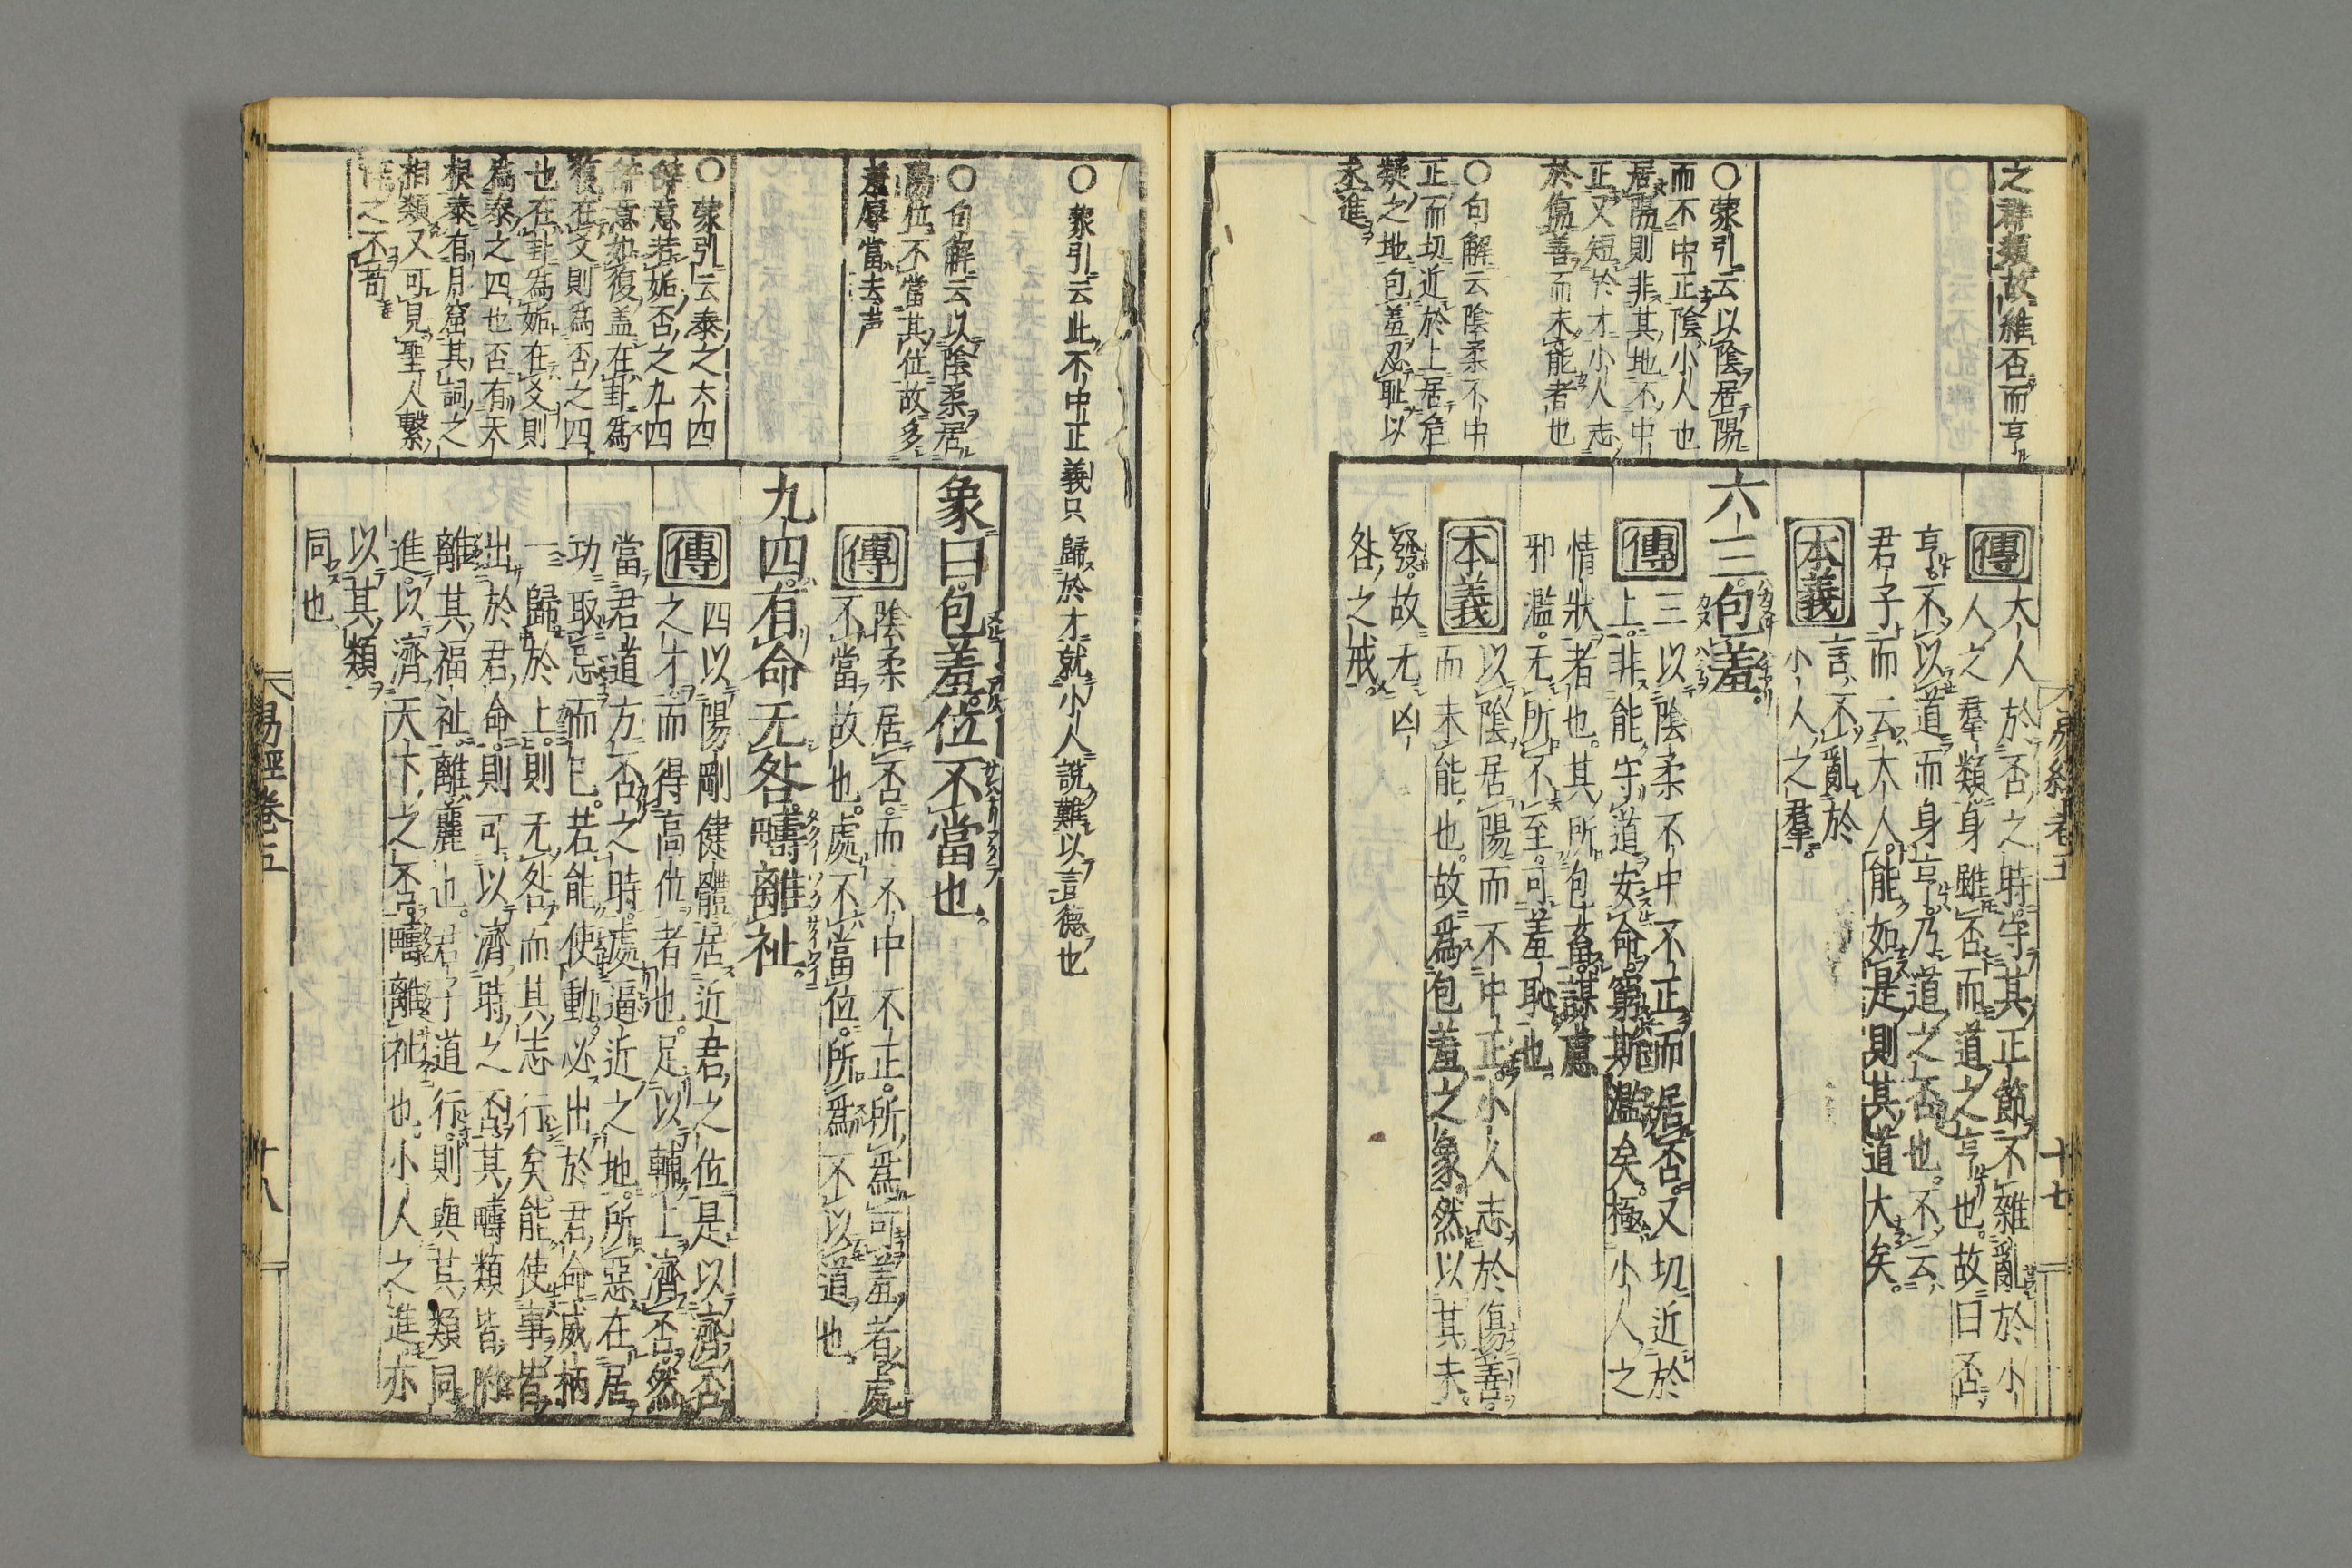 易經卷五
十七
之群類故雖否而亨
○蒙引云以陰居陽
而不中正陰小人也
居陽則非其地不中
正又短於才小人志
於傷善而未能者也
○句解云陰柔不中
正而切近於上居危
疑之地包羞忍恥以
求進
傳
大人於否之時守其正節不雜亂於小
人之羣類身雖否而道之亨也故曰否
亨不以道而身亨乃道之否也不云
君子而云大人能如是則其道大矣
本義
言不亂於
小人之羣
六三包羞
傳
三以陰柔不中不正而居否又切近於
上非能守道安命窮斯濫矣極小人之
情狀者也其所包畜謀慮
邪濫无所不至可羞恥也
本義
以陰居陽而不中正小人志於傷善
而未能也故爲包羞之象然以其未
發故无凶
咎之戒
○蒙引云此不中正義只歸於才就小人說難以言德也
○句解云以陰柔居
陽位不當其位故多
羞辱當去声
○蒙引云泰之六四
辭意若姤否之九四
辭意如復盖在卦爲
復在爻則爲否之四
也在卦爲姤在爻則
爲泰之四也否有天
根泰有月窟其詞之
相類又可見聖人繫
之不苟
象曰包羞位不當也
傳
陰柔居否而不中不正所爲可羞者處
不當故也處不當位所爲不以道也
九四有命无咎疇離祉
傳
四以陽剛健體居近君之位是以濟否
之才而得高位者也足以輔上濟否然
當君道方否之時處逼近之地所惡在居
功取忌而已若能使動必出於君命威柄
一歸於上則无咎而其志行矣能使事皆
出於君命則可以濟時之否其疇類皆附
離其福祉離麗也君子道行則與其類同
進以濟天下之否疇離祉也小人之進亦
以其類
同也
易經卷五
十八